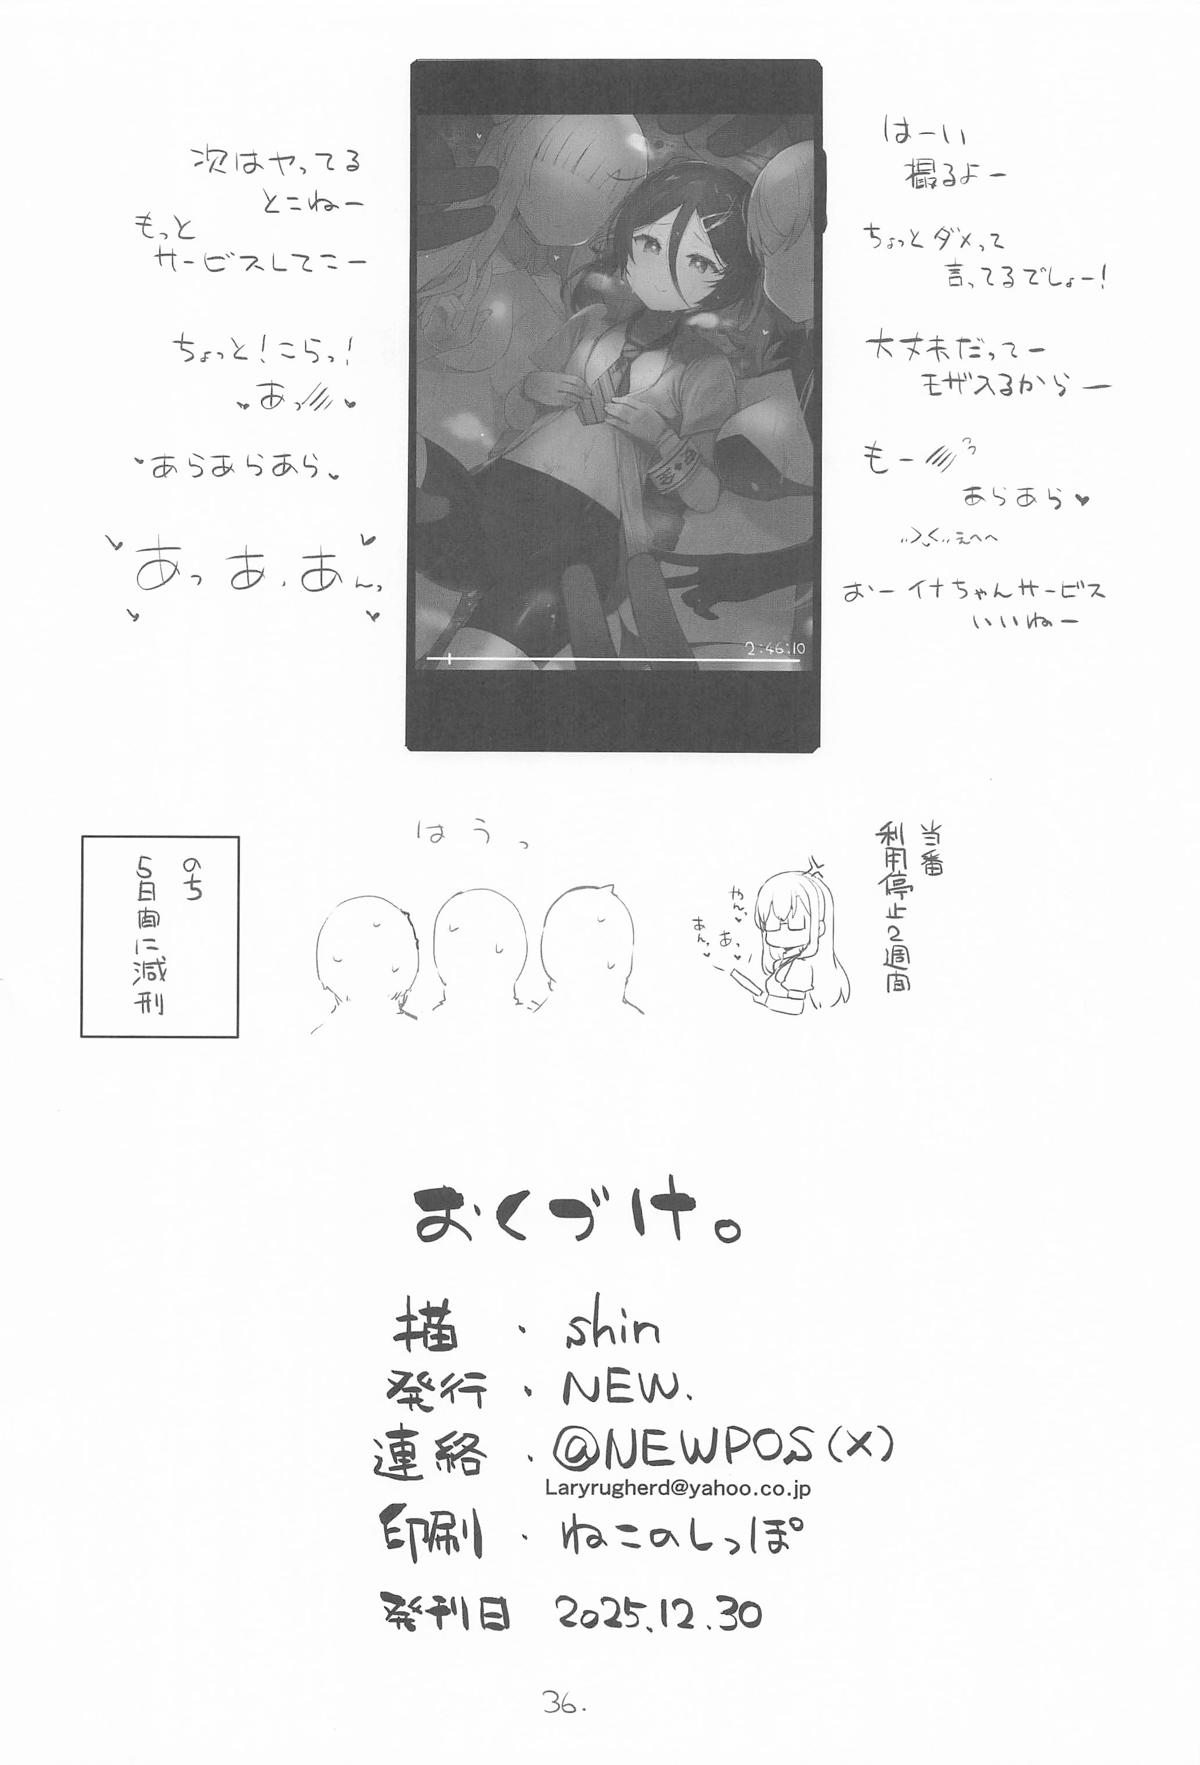 はーい
撮るよー
ちょっとダメって
言ってるでしょー!
大丈夫だってー
モザ入るからー
もー
あらあら♥
えへへ
おーイナちゃんサービス
いいねー
次はヤってる
とこねー
もっと
サービスしてこー
ちょっと!こらっ!
♥あっ♥
♥あらあらあら♥
あっあ、あんっ
2:46:10
当番
利用停止2週間
やん♥
あっ♥
あん♥
はうっ
のち
5日間に減刑
おくづけ。
描・shin
発行・NEW.
連絡・@NEWPOS(X)
Laryrugherd@yahoo.co.jp
印刷・ねこのしっぽ
発刊日 2025.12.30
36.